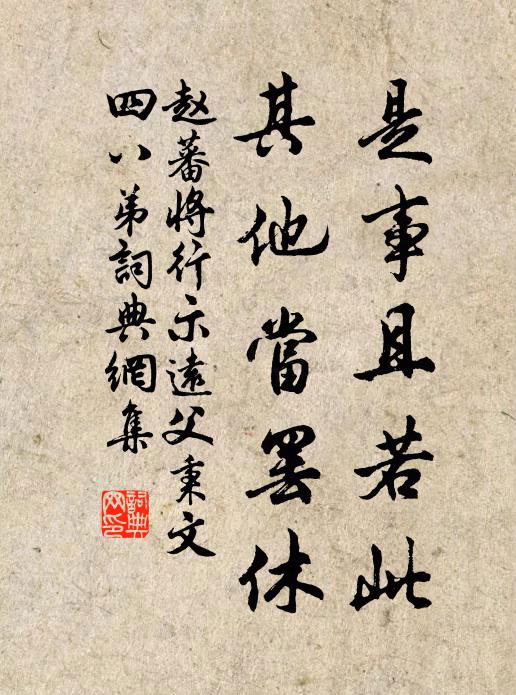 是事且若此
其他當罢休
赵蕃將行示遠父秉文
四八弟詞典網集
詞典網印